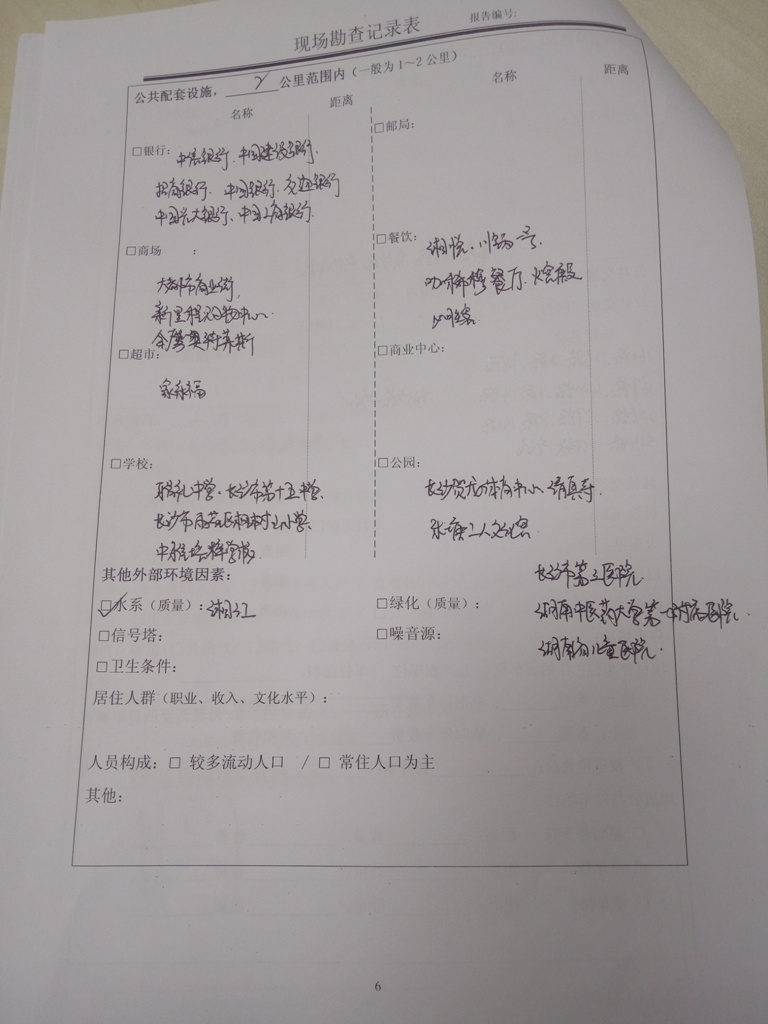 现场勘查记录表
报告编号:
公共配套设施, 2 公里范围内(一般为1~2公里)
名称 距离 名称 距离
□银行: 中信银行、中国建设银行、
招商银行、中国银行、交通银行
中国光大银行、中国工商银行.
□邮局:
□商场 :
大都市商业街,
新里程购物中心
金鹰奥特莱斯
□餐饮: 湘悦、川锅一号、
咖稀糕餐厅、
□超市:
家和福
□商业中心:
□学校:
中学、长沙市第十五中学、
长沙市雨花区树山小学、
中雅培粹学校
□公园:
长沙贺龙体育中心、清真寺、
工人文化宫
其他外部环境因素:
长沙市第三医院
☑水系(质量): 湘江
□绿化(质量):
湖南中医药大学第一附属医院、
□信号塔:
□噪音源:
湖南省儿童医院.
□卫生条件:
居住人群(职业、收入、文化水平):
人员构成: □ 较多流动人口 / □ 常住人口为主
其他:
6